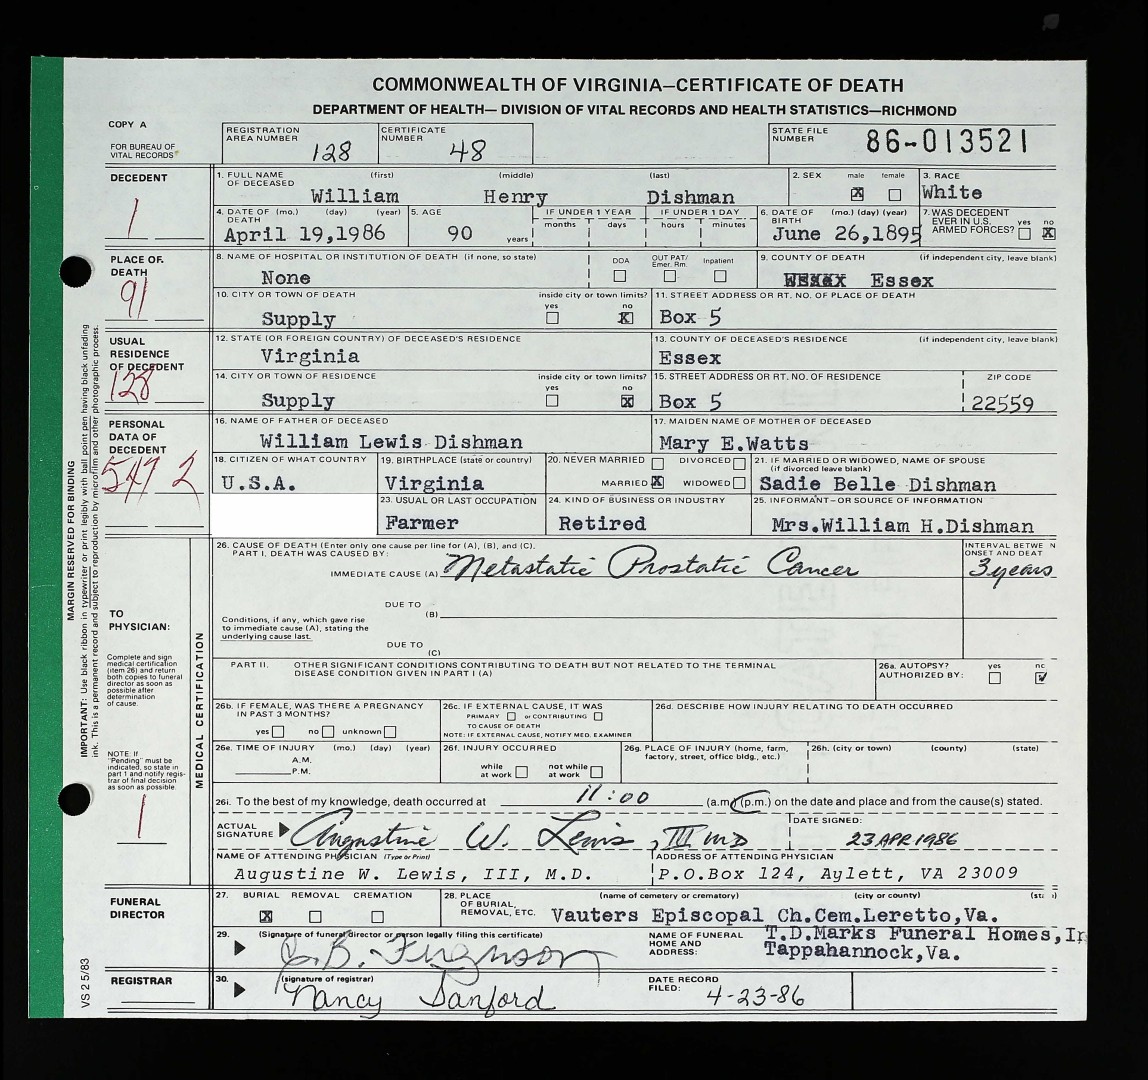 COMMONWEALTH OF VIRGINIA—CERTIFICATE OF DEATH
DEPARTMENT OF HEALTH— DIVISION OF VITAL RECORDS AND HEALTH STATISTICS—RICHMOND
COPY A
FOR BUREAU OF
VITAL RECORDS
REGISTRATION
AREA NUMBER 128
CERTIFICATE
NUMBER 48
STATE FILE
NUMBER 86-013521
DECEDENT
1
1. FULL NAME OF DECEASED (first) (middle) (last)
William Henry Dishman
2. SEX male female
X
3. RACE
White
4. DATE OF DEATH (mo.) (day) (year)
April 19,1986
5. AGE
90 years
IF UNDER 1 YEAR
months days
IF UNDER 1 DAY
hours minutes
6. DATE OF BIRTH (mo.) (day) (year)
June 26,1895
7. WAS DECEDENT
EVER IN U.S.
ARMED FORCES? yes no
X
PLACE OF
DEATH
91
8. NAME OF HOSPITAL OR INSTITUTION OF DEATH (if none, so state)
None
DOA OUT PAT/ Emer. Rm. Inpatient
9. COUNTY OF DEATH (if independent city, leave blank)
Essex
10. CITY OR TOWN OF DEATH inside city or town limits?
yes no
Supply X
11. STREET ADDRESS OR RT. NO. OF PLACE OF DEATH
Box 5
USUAL
RESIDENCE
OF DECEDENT
128
12. STATE (OR FOREIGN COUNTRY) OF DECEASED'S RESIDENCE
Virginia
13. COUNTY OF DECEASED'S RESIDENCE (if independent city, leave blank)
Essex
14. CITY OR TOWN OF RESIDENCE inside city or town limits?
yes no
Supply X
15. STREET ADDRESS OR RT. NO. OF RESIDENCE ZIP CODE
Box 5 22559
PERSONAL
DATA OF
DECEDENT
547 2
16. NAME OF FATHER OF DECEASED
William Lewis Dishman
17. MAIDEN NAME OF MOTHER OF DECEASED
Mary E.Watts
18. CITIZEN OF WHAT COUNTRY
U.S.A.
19. BIRTHPLACE (state or country)
Virginia
20. NEVER MARRIED DIVORCED
MARRIED X WIDOWED
21. IF MARRIED OR WIDOWED, NAME OF SPOUSE
(if divorced leave blank)
Sadie Belle Dishman
23. USUAL OR LAST OCCUPATION
Farmer
24. KIND OF BUSINESS OR INDUSTRY
Retired
25. INFORMANT—OR SOURCE OF INFORMATION
Mrs.William H.Dishman
MARGIN RESERVED FOR BINDING
IMPORTANT: Use black ribbon in typewriter or print legibly with ball point pen having black unfading
ink. This is a permanent record and subject to reproduction by microfilm and other photographic process.
TO
PHYSICIAN:
Complete and sign
medical certification
(item 26) and return
both copies to funeral
director as soon as
possible after
determination
of cause.
NOTE: If
"Pending" must be
indicated, so state in
part 1 and notify regis-
trar of final decision
as soon as possible.
1
MEDICAL CERTIFICATION
26. CAUSE OF DEATH (Enter only one cause per line for (A), (B), and (C).
PART I, DEATH WAS CAUSED BY:
INTERVAL BETWE N
ONSET AND DEAT
IMMEDIATE CAUSE (A) Metastatic Prostatic Cancer 3 years
DUE TO
(B)
Conditions, if any, which gave rise
to immediate cause (A), stating the
underlying cause last.
DUE TO
(C)
PART II. OTHER SIGNIFICANT CONDITIONS CONTRIBUTING TO DEATH BUT NOT RELATED TO THE TERMINAL
DISEASE CONDITION GIVEN IN PART I (A)
26a. AUTOPSY?
AUTHORIZED BY: yes no
26b. IF FEMALE, WAS THERE A PREGNANCY
IN PAST 3 MONTHS?
yes no unknown
26c. IF EXTERNAL CAUSE, IT WAS
PRIMARY or CONTRIBUTING
TO CAUSE OF DEATH
NOTE: IF EXTERNAL CAUSE, NOTIFY MED. EXAMINER
26d. DESCRIBE HOW INJURY RELATING TO DEATH OCCURRED
26e. TIME OF INJURY (mo.) (day) (year)
A.M.
P.M.
26f. INJURY OCCURRED
while at work not while at work
26g. PLACE OF INJURY (home, farm,
factory, street, office bldg., etc.)
26h. (city or town) (county) (state)
26i. To the best of my knowledge, death occurred at 11:00 (a.m.) (p.m.) on the date and place and from the cause(s) stated.
ACTUAL
SIGNATURE Augustine W. Lewis, III MD
DATE SIGNED:
23 APR 1986
NAME OF ATTENDING PHYSICIAN (Type or Print)
Augustine W. Lewis, III, M.D.
ADDRESS OF ATTENDING PHYSICIAN
P.O.Box 124, Aylett, VA 23009
FUNERAL
DIRECTOR
27. BURIAL REMOVAL CREMATION
X
28. PLACE
OF BURIAL,
REMOVAL, ETC. (name of cemetery or crematory) (city or county)
Vauters Episcopal Ch.Cem.Leretto,Va.
29. (Signature of funeral director or person legally filing this certificate)
J.B. Ferguson
NAME OF FUNERAL
HOME AND
ADDRESS:
T.D.Marks Funeral Homes,In
Tappahannock,Va.
REGISTRAR
30. (signature of registrar)
Nancy Sanford
DATE RECORD
FILED: 4-23-86
VS 2 5/83